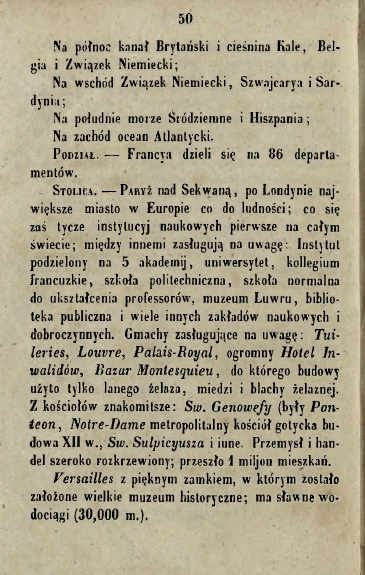 50
Na północ kanał Brytański i cieśnina Kale, Bel-
gia i Związek Niemiecki;
Na wschód Związek Niemiecki, Szwajcarya i Sar-
dynia;
Na południe morze Śródziemne i Hiszpania;
Na zachód ocean Atlantycki.
PODZIAŁ. — Francya dzieli się na 86 departa-
mentów.
STOLICA. — PARYŻ nad Sekwaną, po Londynie naj-
większe miasto w Europie co do ludności; co się
zaś tycze instytucyj naukowych pierwsze na całym
świecie; między innemi zasługują na uwagę: Instytut
podzielony na 5 akademij, uniwersytet, kollegium
francuzkie, szkoła politechniczna, szkoła normalna
do ukształcenia professorów, muzeum Luwru, biblio-
teka publiczna i wiele innych zakładów naukowych i
dobroczynnych. Gmachy zasługujące na uwagę: Tui-
leries, Louvre, Palais-Royal, ogromny Hotel In-
walidów, Bazar Montesquieu, do którego budowy
użyto tylko lanego żelaza, miedzi i blachy żelaznej.
Z kościołów znakomitsze: Sw. Genowefy (były Pan-
teon, Notre-Dame metropolitalny kościół gotycka bu-
dowa XII w., Sw. Sulpicyusza i inne. Przemysł i han-
del szeroko rozkrzewiony; przeszło 1 miljon mieszkań.
Versailles z pięknym zamkiem, w którym zostało
założone wielkie muzeum historyczne; ma sławne wo-
dociągi (30,000 m.).